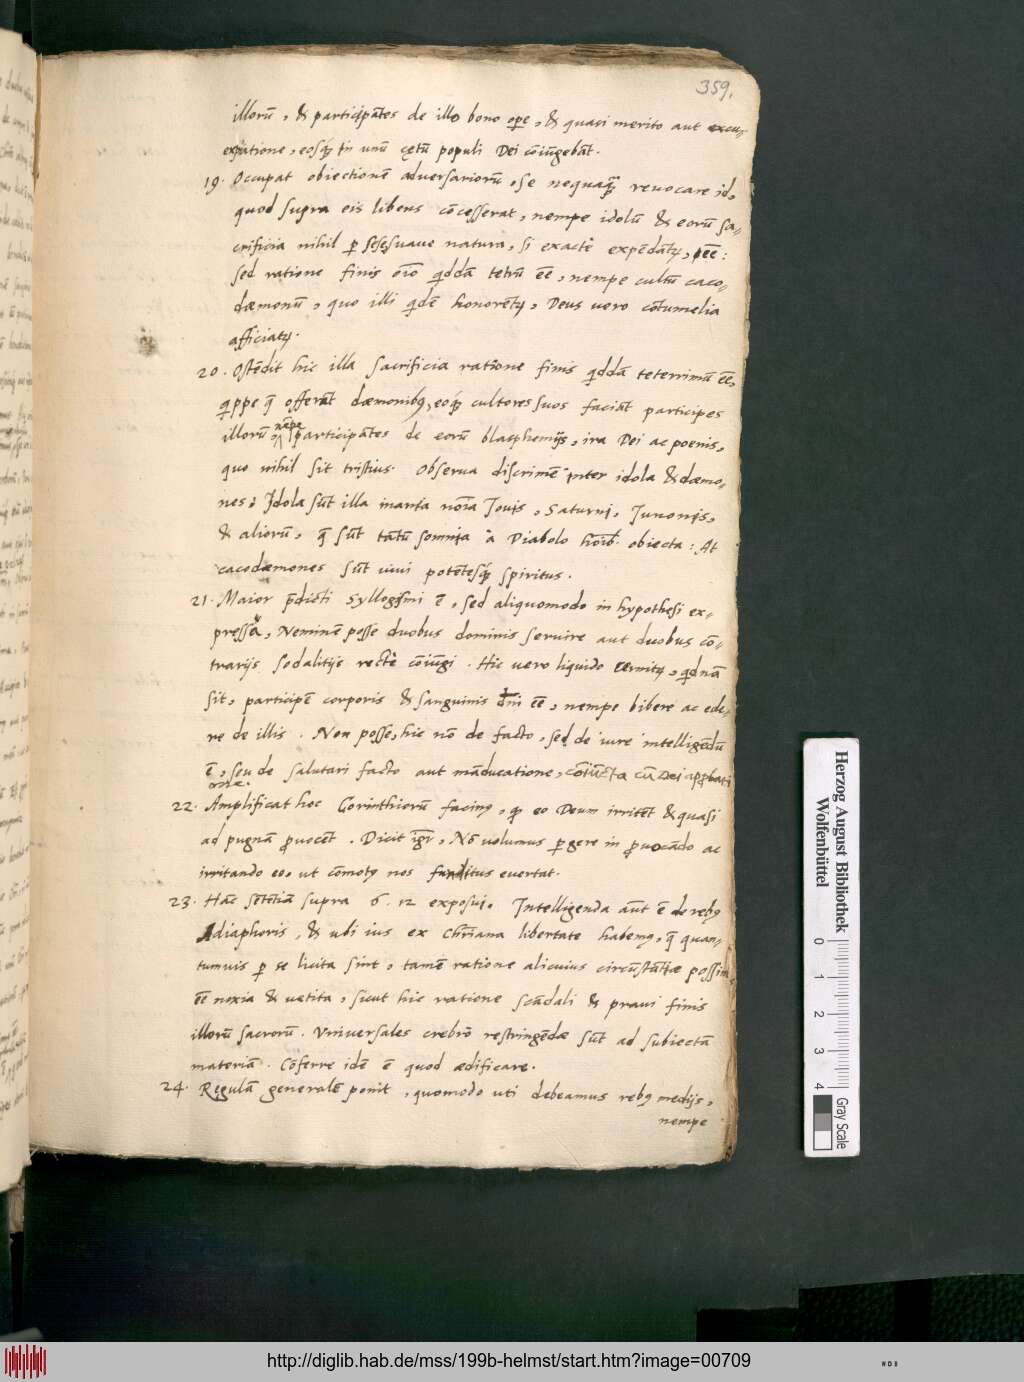 359.
illorū, & participātes de illo bono opē, & quasi merito aut
expiatione, eosq́ȝ in unū cętū populi Dei cōiūgebāt.
19. Occupat obiectionē adversariorū, se nequaq̄ȝ revocare id,
quod supra eis libens cōcesserat, nempe idolū & eorū sa-
crificia nihil p̱ sese suaue natura, si exactè expēdātꝛ, eē:
sed ratione finis oīo qddā tetrū eē, nempe cultū caco-
dæmonū, quo illi qdē honorētꝛ, Deus uero cōtumelia
afficiatꝛ.
20. Ostēdit hic illa sacrificia ratione finis qddā teterrimū eē,
qppe q̄ offerāt dæmonibꝰ, eosq́ȝ cultores suos faciāt participes
illorū nēpe participātes de eorū blasphemijs, ira Dei ac poenis,
quo nihil sit tristius. Observa discrimē inter idola & dæmo-
nes: Idola sūt illa inania noīa Jovis, Saturni, Junonis,
& aliorū, q̄ sūt tātū somnia à Diabolo hoībꝰ obiecta: At
cacodæmones sūt uiui potētesq́ȝ spiritus.
21. Maior p̄dicti syllogismi ē, sed aliquomodo in hypothesi ex-
pressa, Neminē posse duobus dominis seruire aut duobus cō-
trarijs sodalitijs rectè cōiūgi. Hic uero liquido cernitꝛ, qdnā
sit, participē corporis & sanguinis dn̄i eē, nempe bibere ac ede-
re de illis. Non posse, hic nō de facto, sed de iure intelligēdū
ē, seu de salutari facto aut māducatione, cōiūcta cū Dei approbati
one.
22. Amplificat hoc Corinthiorū facinꝰ, qꝫ eo Deum irritēt & quasi
ad pugnā ꝓvocēt. Dicit igr̄, Nō uolumus p̱gere in ꝓuocādo ac
irritando eo, ut cōmotꝰ nos funditus evertat.
23. Hāc sētētiā supra 6. 12 exposui. Intelligenda aūt ē de rebꝰ
Adiaphoris, & ubi ius ex Chr̄iana libertate habemꝰ, q̄ quan-
tumuis p̱ se licita sint, tamē ratione alicuius circūstātiæ possint
eē noxia & uetita, sicut hic ratione scādali & praui finis
illorū sacrorū. Vniuersales crebrò restringēdæ sūt ad subiectā
materiā. Cōferre idē ē quod ædificare.
24. Regulā generalē ponit, quomodo uti debeamus rebꝰ medijs,
nempe
Herzog August Bibliothek
Wolfenbüttel
0 1 2 3 4
Gray Scale
http://diglib.hab.de/mss/199b-helmst/start.htm?image=00709
WDB